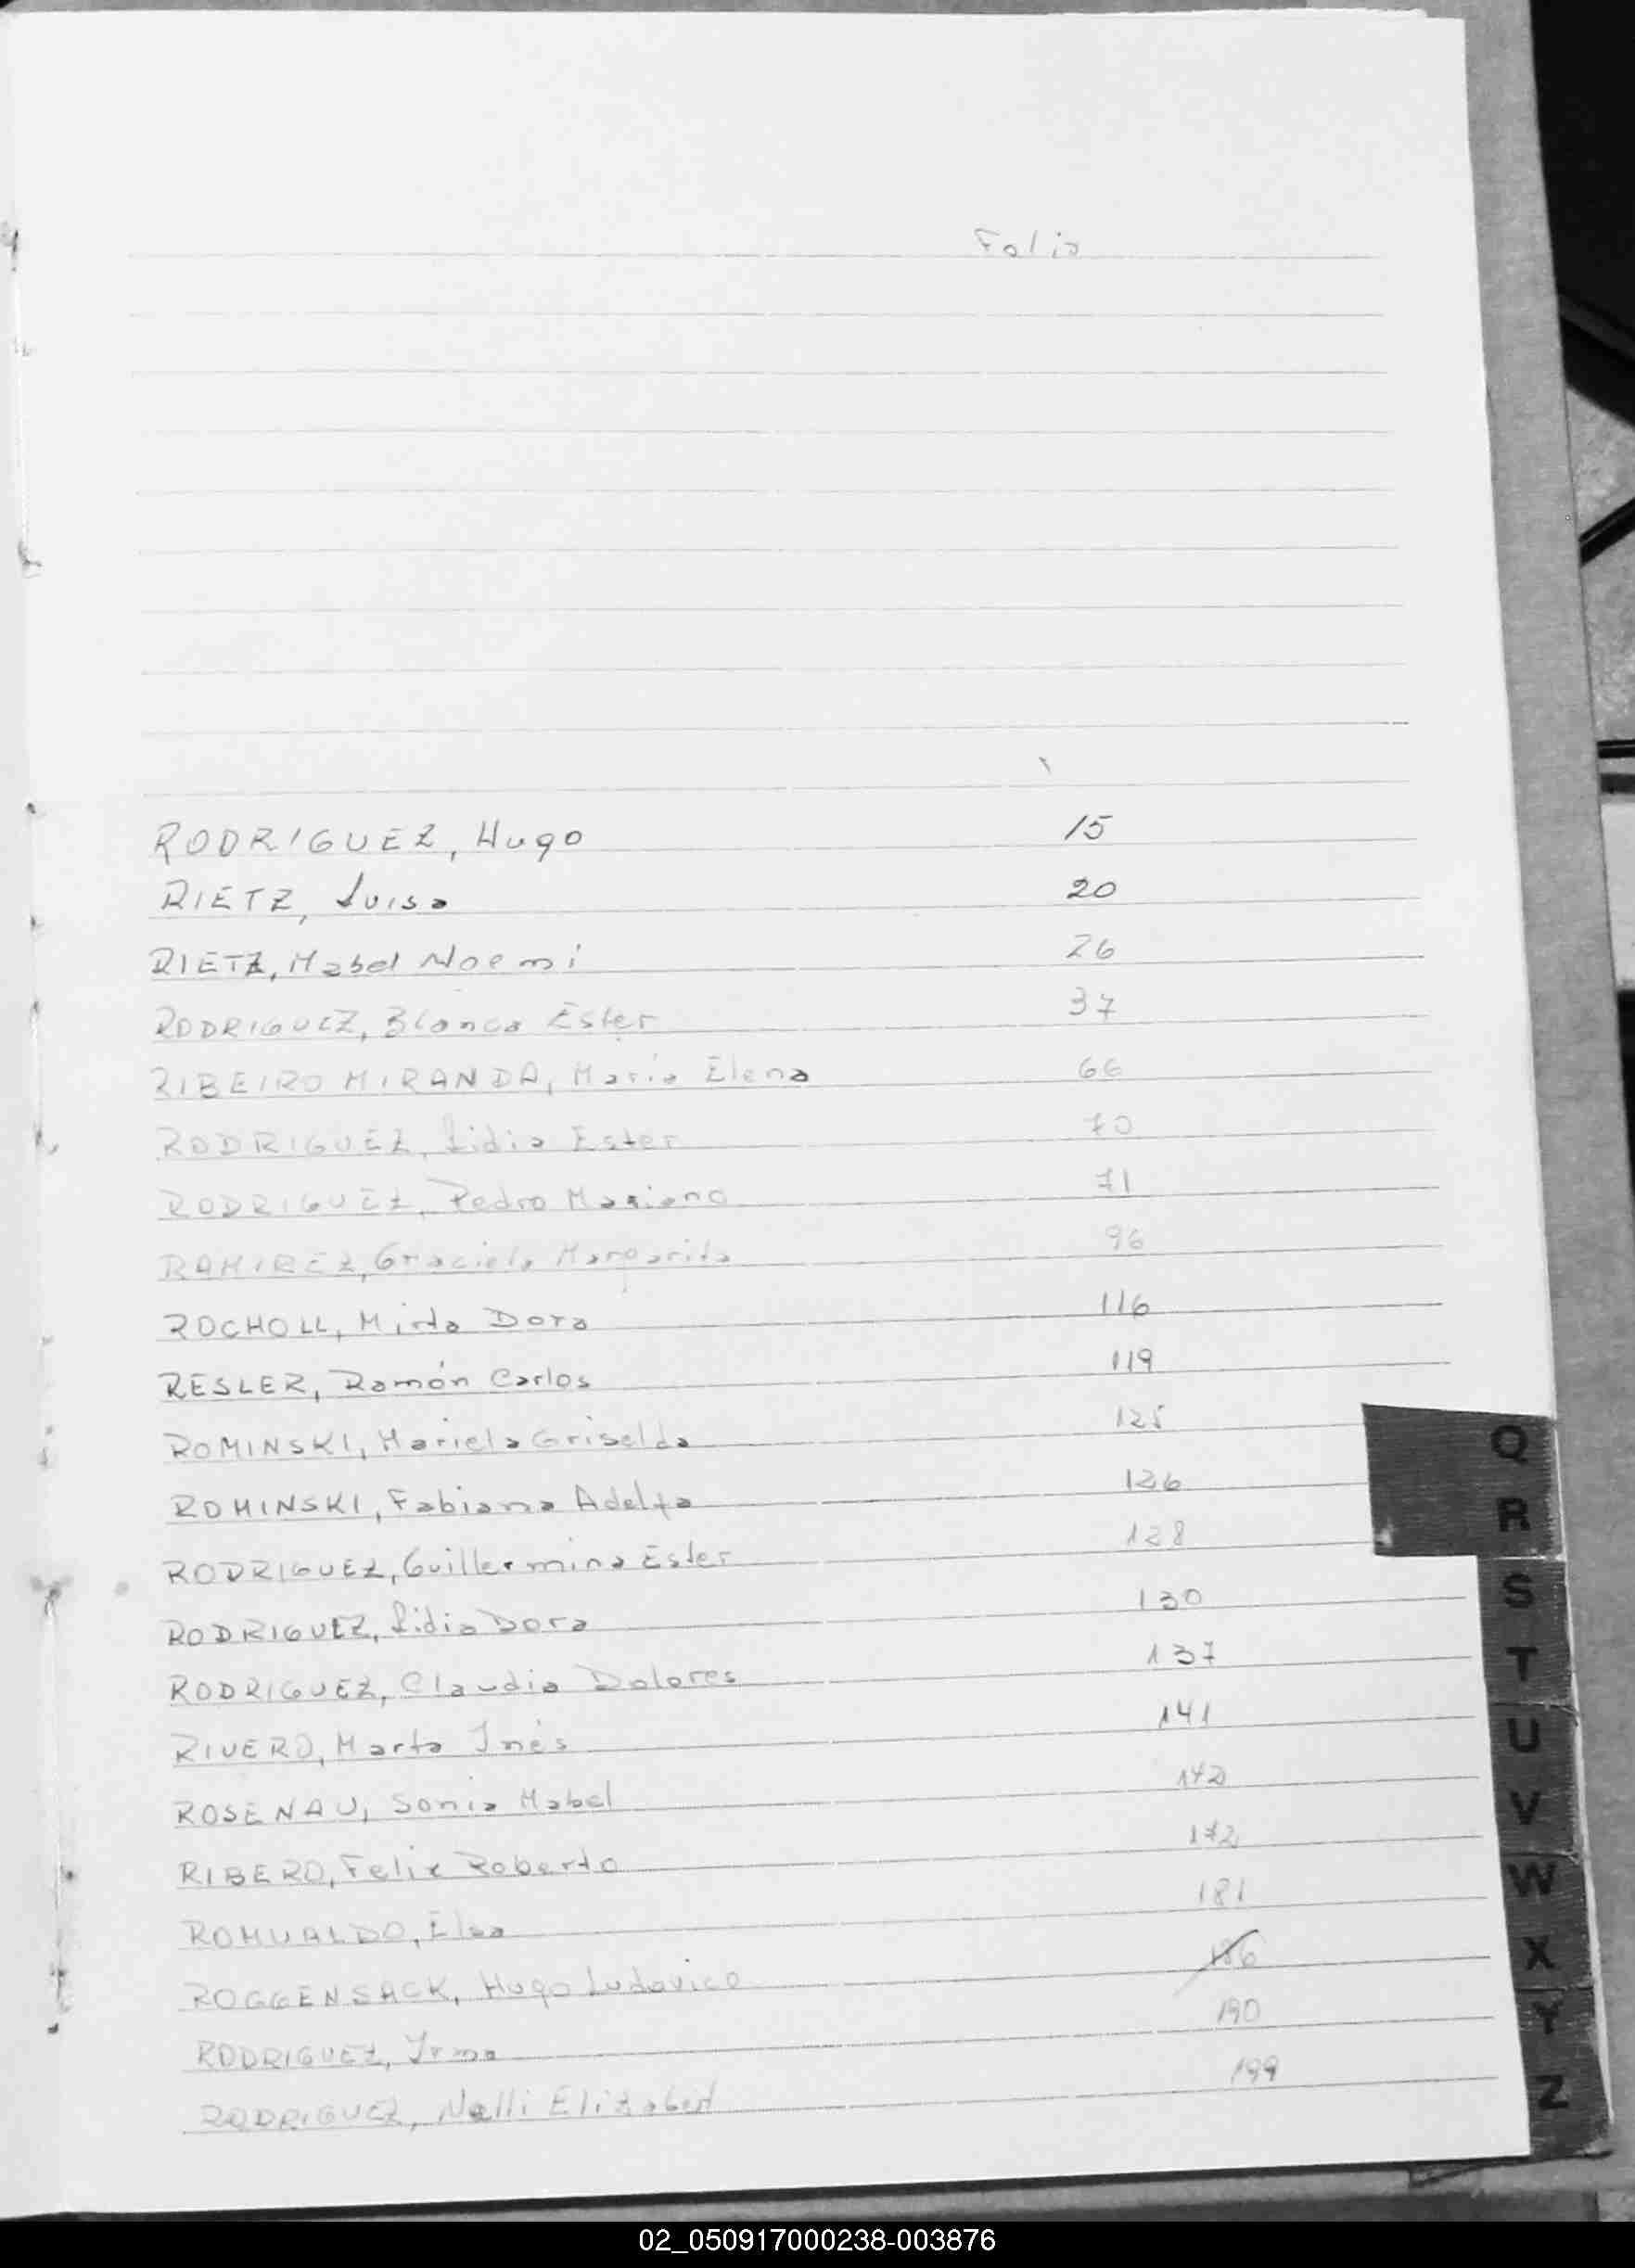 Folio
RODRIGUEZ, Hugo 15
RIETZ, Luisa 20
RIETZ, Mabel Noemi 26
RODRIGUEZ, Blanca Ester 37
RIBEIRO MIRANDA, Maria Elena 66
RODRIGUEZ, Lidia Ester 70
RODRIGUEZ, Pedro Mariano 71
RAMIREZ, Graciela Margarita 96
ROCHOLL, Mirta Dora 116
RESLER, Ramón Carlos 119
ROMINSKI, Mariela Griselda 125
ROMINSKI, Fabiana Adelfa 126
RODRIGUEZ, Guillermina Ester 128
RODRIGUEZ, Lidia Dora 130
RODRIGUEZ, Claudia Dolores 137
RIVERO, Marta Inés 141
ROSENAU, Sonia Mabel 142
RIBERO, Felix Roberto 172
ROMUALDO, Elsa 181
ROGGENSACK, Hugo Ludovico 186
RODRIGUEZ, Irma 190
RODRIGUEZ, Nelli Elizabet 199
Q
R
S
T
U
V
W
X
Y
Z
02_050917000238-003876